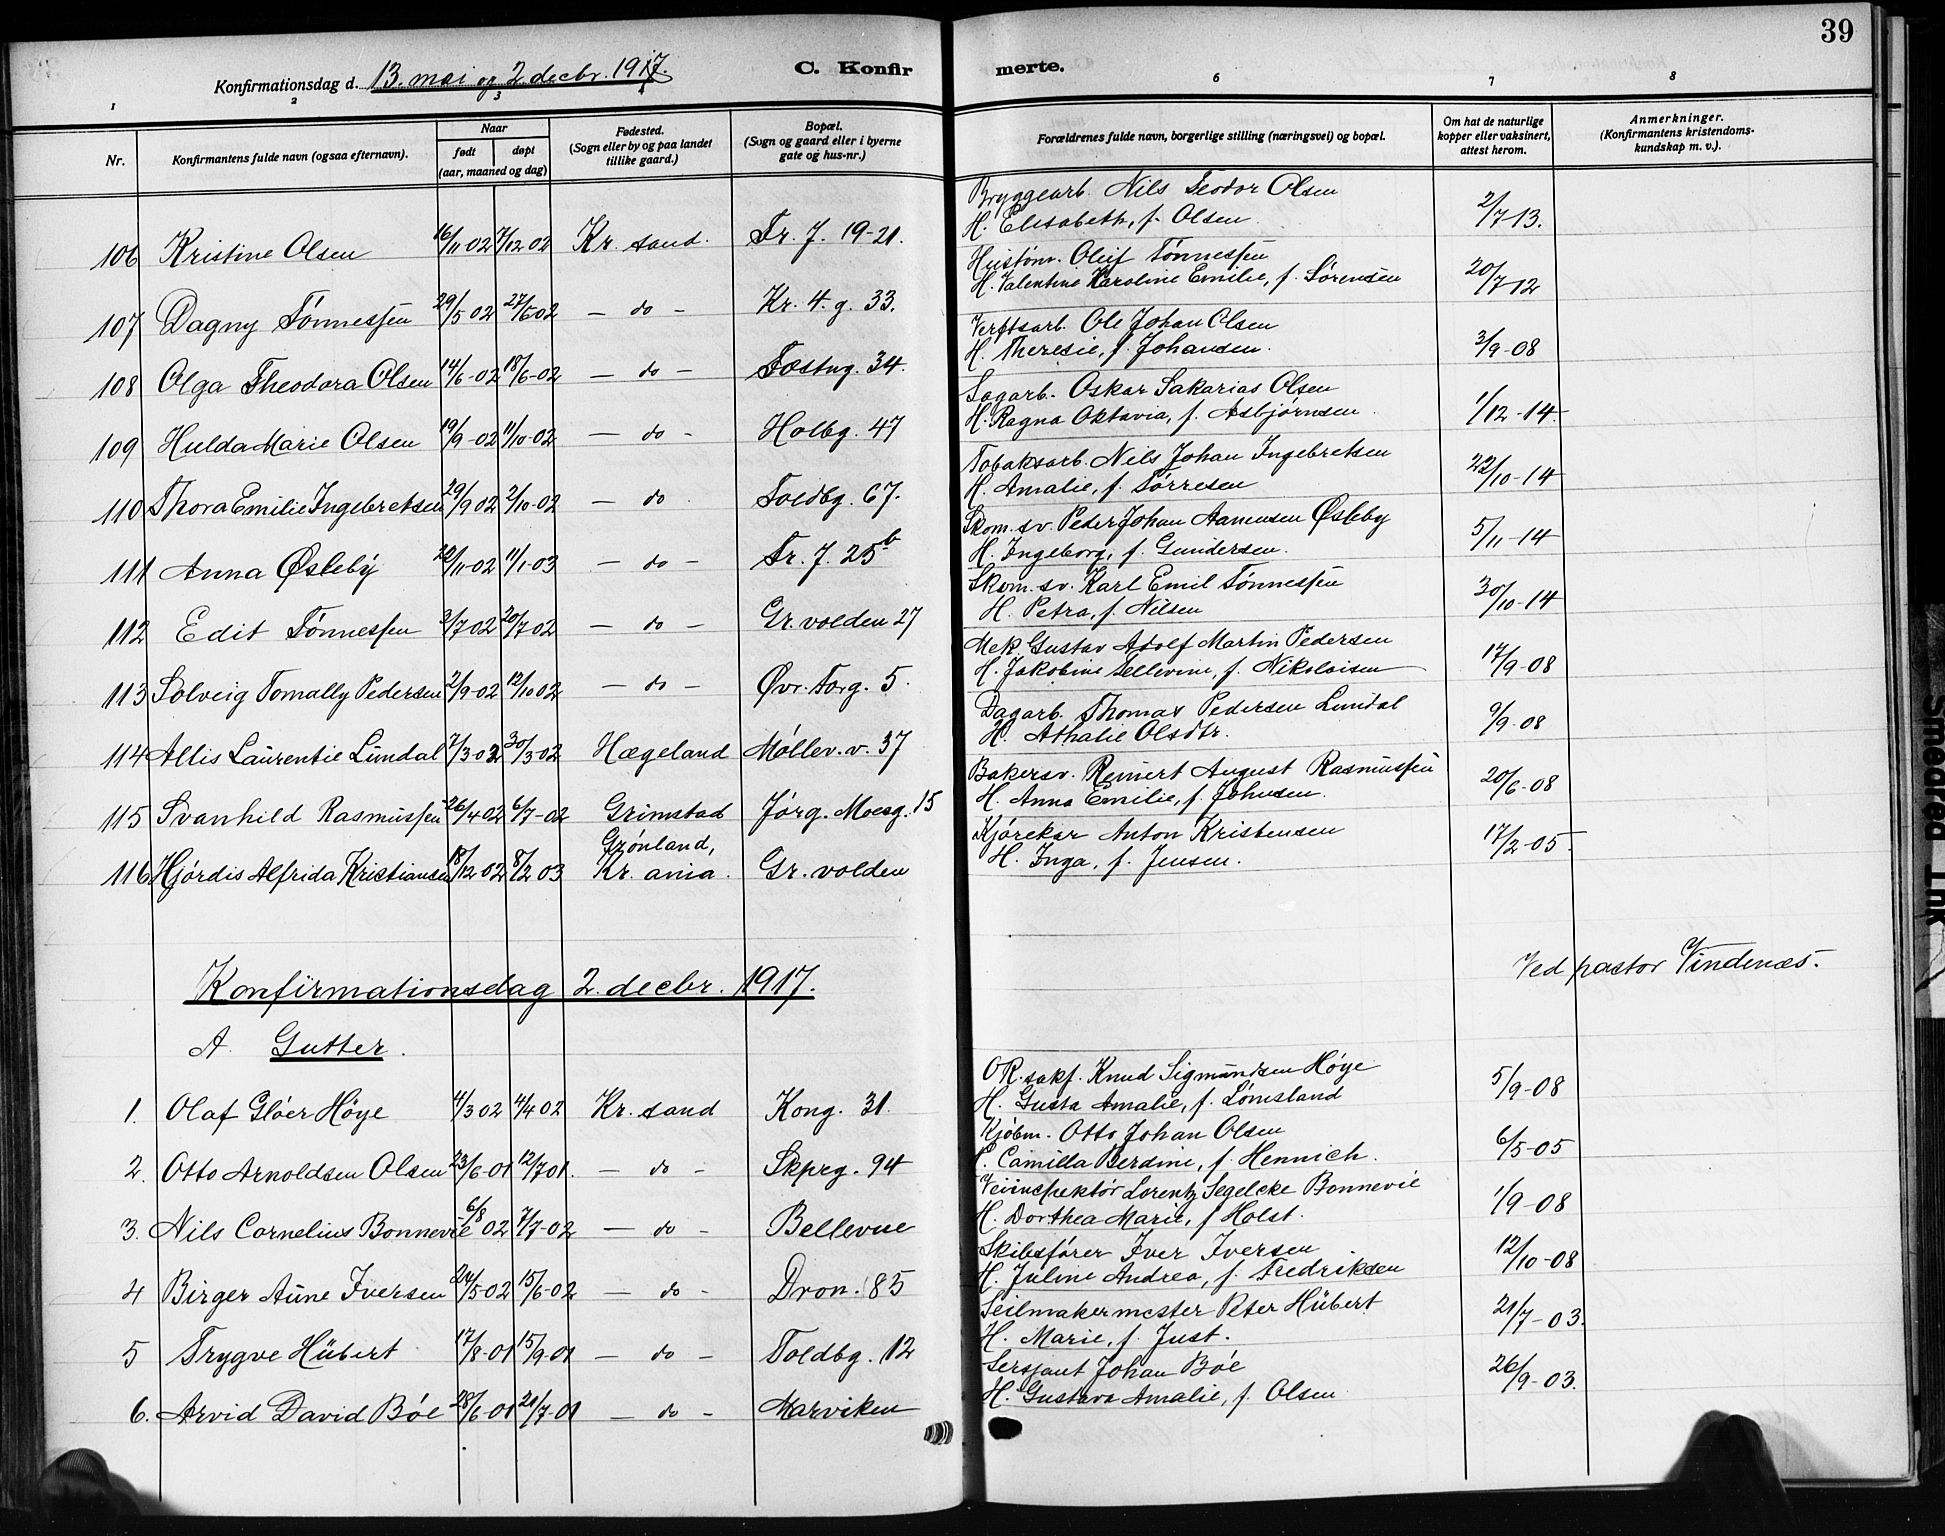 39
Konfirmationsdag d. 13. mai og 2. decbr. 1917.
C. Konfirmerte.
1 2 3 4 6 7 8
Nr.
Konfirmantens fulde navn (ogsaa efternavn).
Naar
født døpt
(aar, maaned og dag)
Fødested.
(Sogn eller by og paa landet
tillike gaard.)
Bopæl.
(Sogn og gaard eller i byerne
gate og hus-nr.)
Forældrenes fulde navn, borgerlige stilling (næringsvei) og bopæl.
Om hat de naturlige
kopper eller vaksinert,
attest herom.
Anmerkninger.
(Konfirmantens kristendoms-
kundskap m. v.).
Bryggearb. Nils Teodor Olsen
106 Kristine Olsen 16/11-02 7/12 02 Kr. sand. Tr. J. 19-21. H. Elisabeth, f. Olsen. 2/7-13.
Hustøm. Oluf Tønnessen
107 Dagny Tønnessen 29/5 02 27/6 02 — do — Kr. 4. g. 33. H. Valentine Karoline Emilie, f. Sørensen 20/7-12
Verftsarb. Ole Johan Olsen
108 Olga Theodora Olsen 14/6-02 18/6-02 — do — Fæstng. 34. H. Theresie, f. Johansen. 3/9-08
Sagarb. Oskar Sakarias Olsen
109 Hulda Marie Olsen 19/9-02 11/10-02 — do — Holbg. 47 H. Ragna Oktavia, f. Asbjørnsen. 1/12-14.
Tobaksarb. Nils Johan Ingebretsen
110 Thora Emilie Ingebretsen 29/9 02 2/10-02 — do Toldbg. 67. H. Amalie, f. Tørresen 22/10-14
Skom. sv. Peder Johan Aanensen Øsleby
111 Anna Øsleby 22/11-02 11/1-03 — do — Tr. J. 25b H. Ingeborg, f. Gundersen. 5/11-14
Skom. sv. Karl Emil Tønnessen
112 Edit Tønnessen 3/7 02 20/7 02 — do — Gr. volden 27 H. Petra, f. Nilsen 30/10-14
Mek. Gustav Adolf Martin Pedersen
113 Solveig Tomally Pedersen 2/9-02 12/10 02 — do — Øvr. Torg. 5. H. Jakobine Sellevine, f. Nikolaisen 17/9-08
Dagarb. Thomas Pedersen Lundal
114 Allis Laurentie Lundal 7/3 02 30/3-02 Hægeland Møllev. v. 37 H. Athalie Olsdtr. 9/9-08
Bakersv. Reinert August Rasmussen
115 Svanhild Rasmussen 26/4 02 6/7-02 Grimstad Jørg. Moesg. 15 H. Anna Emilie, f. Johnsen. 20/6-08
Grønland, Kjørekar Anton Kristensen
116 Hjørdis Alfrida Kristiansen 18/12 02 8/2 03 Kr. ania. Gr. volden H. Inga, f. Jensen. 17/2-05.
Konfirmationsdag 2. decbr. 1917. Ved pastor Vindenæs.
A. Gutter.
OR. sakf. Knud Sigmundsen Høye
1. Olaf Gløer Høye 4/3 02 4/4 02 Kr. sand Kong. 31. H. Gusta Amalie, f. Lømsland 5/9-08
Kjøbm. Otto Johan Olsen
2. Otto Arnoldsen Olsen 23/6-01 12/7 01. — do — Skprg. 94 Camilla Berdine, f. Hennich. 6/5-05
Veiinspektør Lorentz Segelcke Bonnevie
3. Nils Cornelius Bonnevie 6/8 02 7/7-02 — do — Bellevue H. Dorthea Marie, f Holst. 1/9-08
Skibsfører Iver Iversen
4 Birger Aune Iversen 24/5-02 15/6-02 — do — Dron. 85 H. Juline Andrea, f. Fredriksen 12/10-08
Seilmakermester Peter Hübert
5 Trygve Hübert 17/8-01 15/9-01 — do — Toldbg. 12 H. Marie, f. Just. 21/7-03.
Sersjant Johan Bøe
6. Arvid David Bøe 28/6-01 21/7-01 — do — Marviken H. Gustava Amalie, f. Olsen 26/9-03.
Smeared Ink